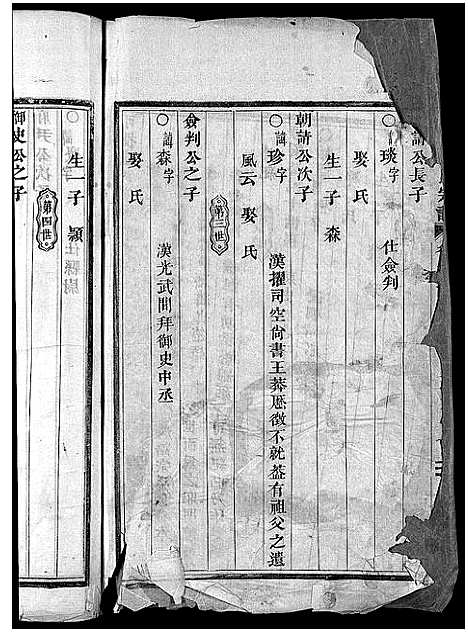 請公長子
○諱琰字　仕僉判
娶氏
生一子森
朝請公次子
○諱珍字　漢擢司空尙書王莽歷徵不就葢有祖父之遺
風云　娶氏
第三世
僉判公之子
○諱森字　漢光武間拜御史中丞
娶氏
生一子顥
第四世
御史公之子